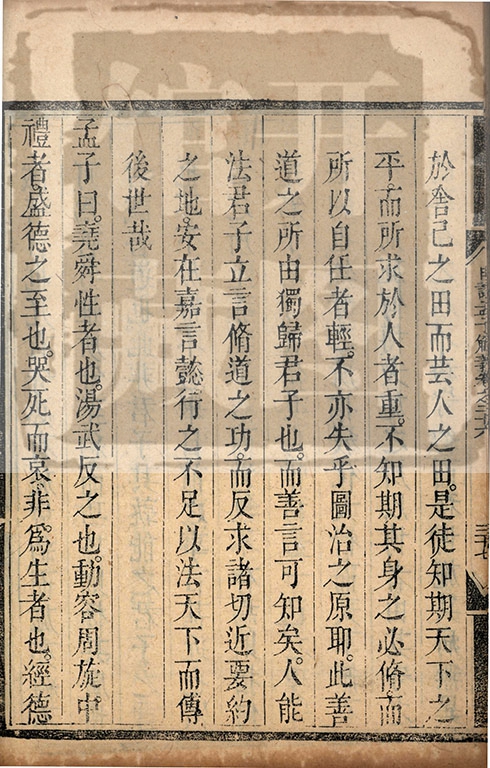 於舍己之田而芸人之田。是徒知期天下之
平。而所求於人者重。不知期其身之必脩。而
所以自任者輕。不亦失乎圖治之原耶。此善
道之所由獨歸君子也。而善言可知矣。人能
法君子立言脩道之功。而反求諸切近要約
之地。安在嘉言懿行之不足以法天下而傳
後世哉
孟子曰。堯舜性者也。湯武反之也。動容周旋中
禮者。盛德之至也。哭死而哀。非爲生者也。經德